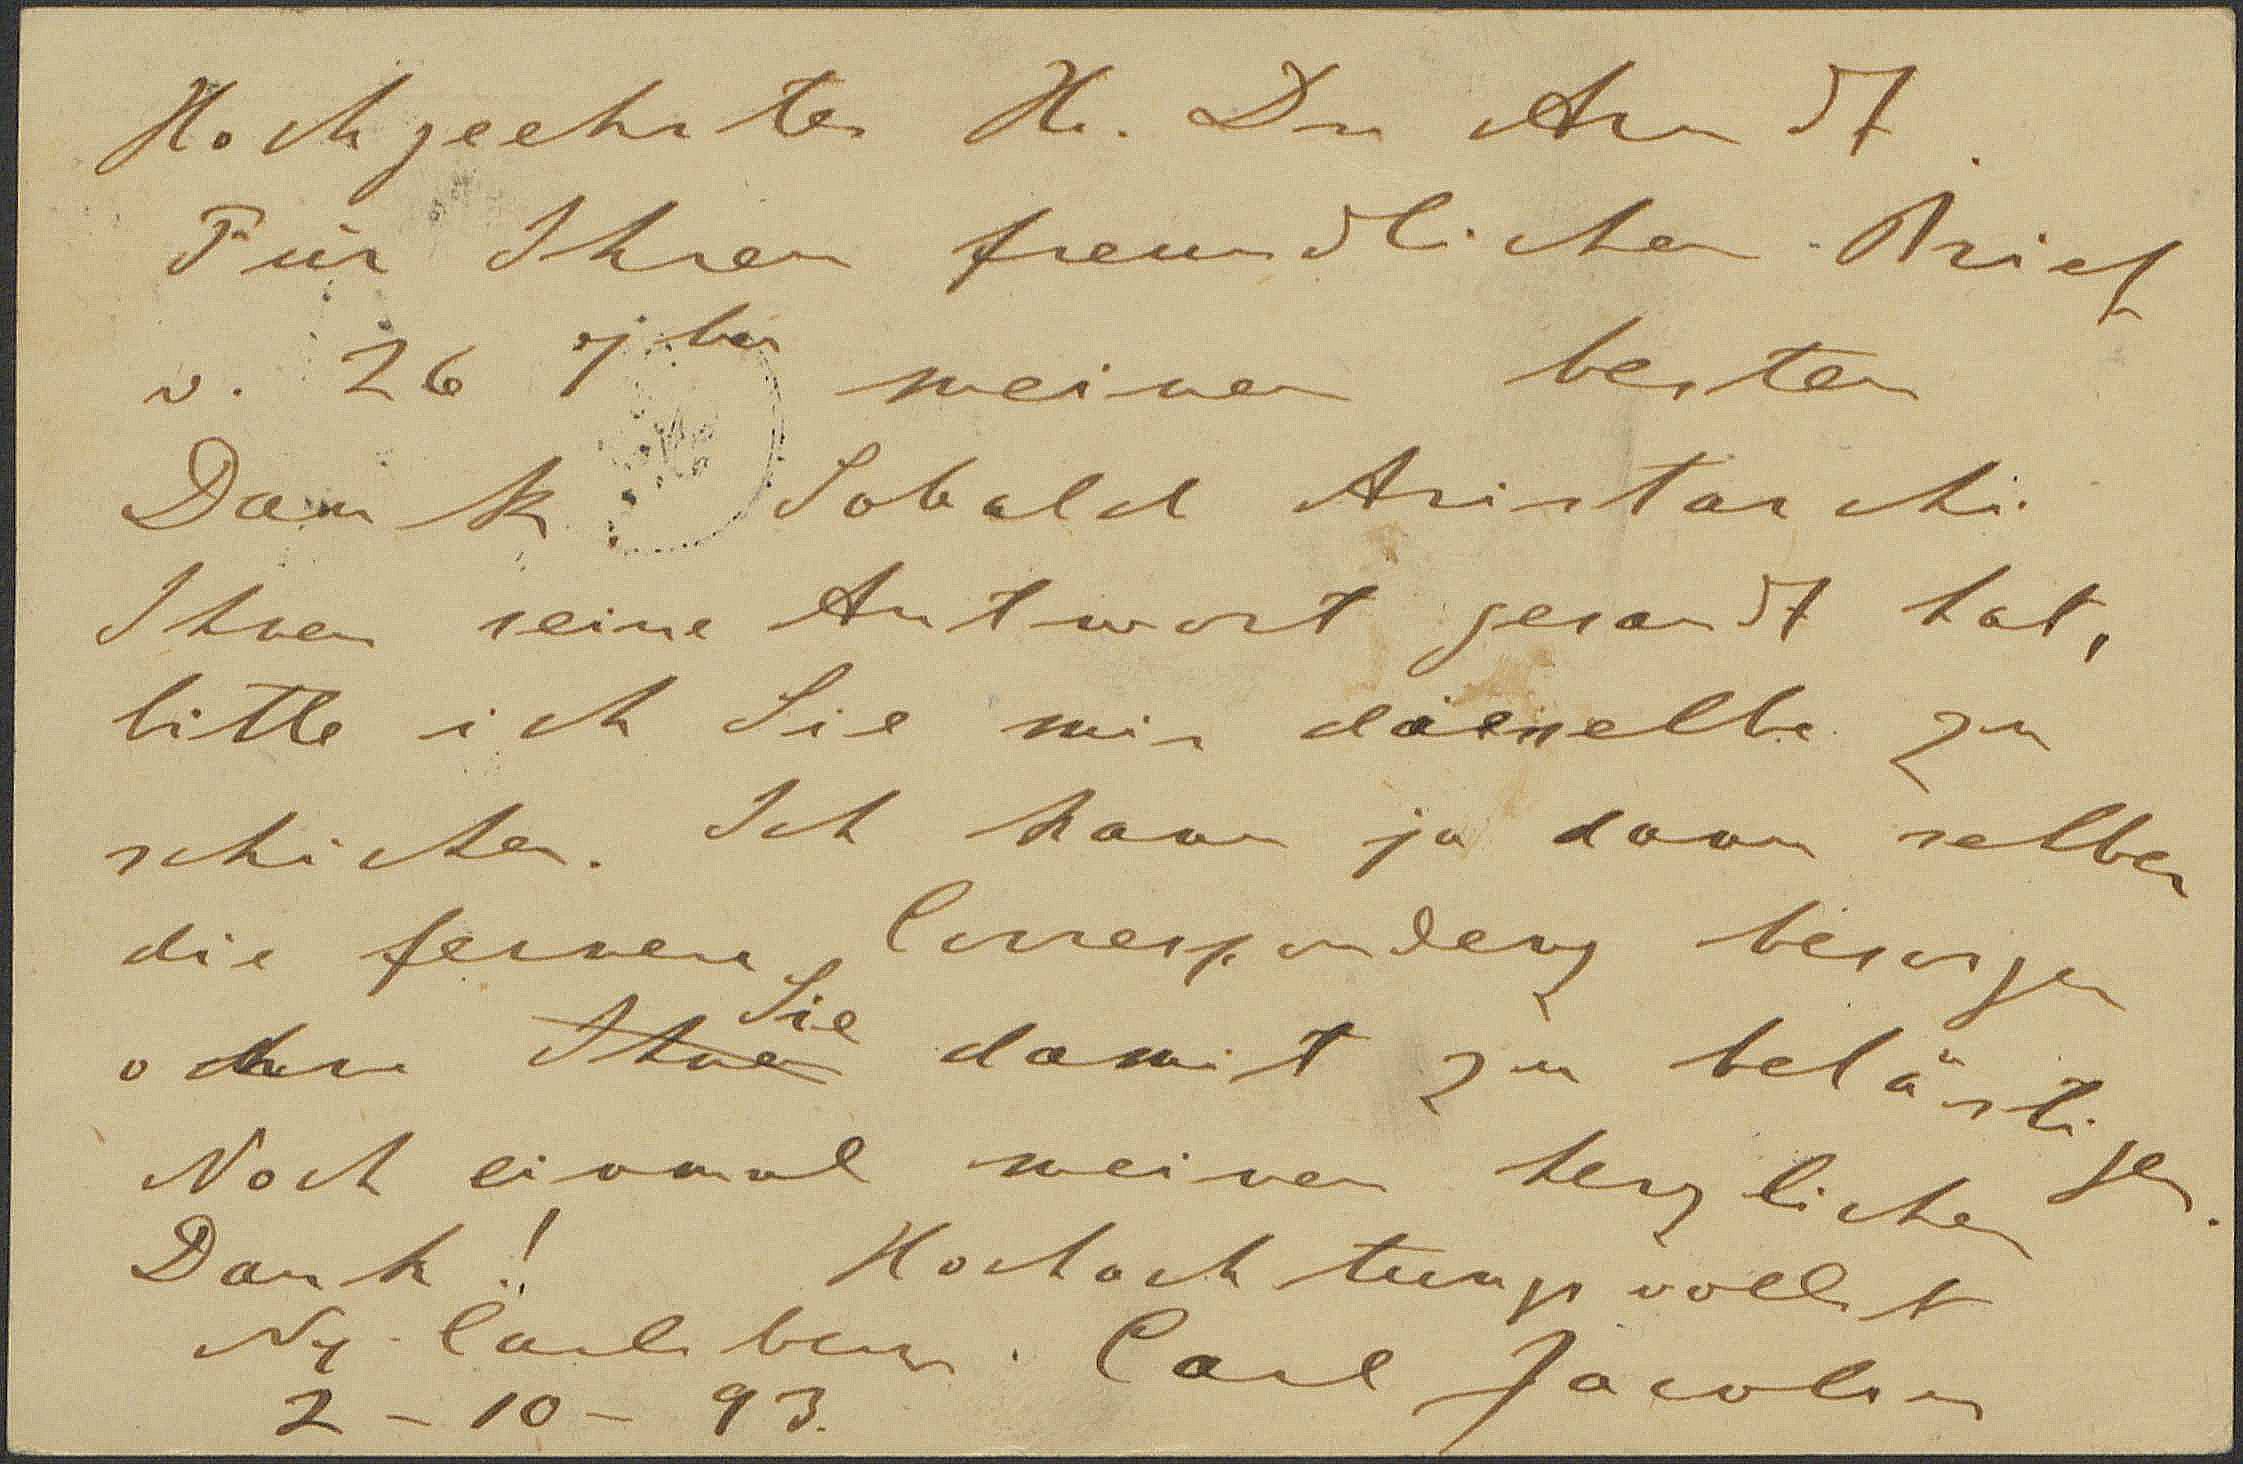 Hochgeehrter H. Dr Arndt.
Für Ihren freundlichen Brief
v. 26 7ber meinen besten
Dank Sobald Aristarchi
Ihnen seine Antwort gesandt hat,
bitte ich Sie mir dieselbe zu
schicken. Ich kann ja dann selber
die fernere Correspondenz besorgen
ohne Ihnen Sie damit zu belästigen.
Noch einmal meinen herzlichen
Dank! Hochachtungsvollst
Ny-Carlsberg. Carl Jacobsen
2-10-93.